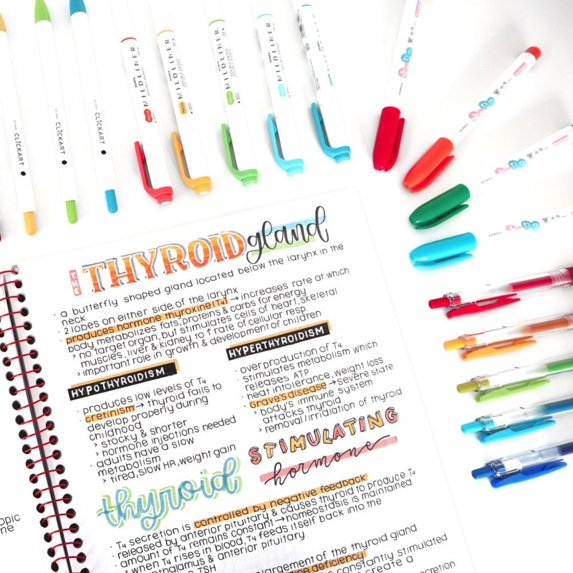 CLICKART
CLICKART
CLICKART
MILDLINER
MILDLINER
MILDLINER
MILDLINER
MILDLINER
THE THYROID gland
· a butterfly shaped gland located below the larynx in the
neck
· 2 lobes on either side of the larynx
· produces hormone thyroxine(T4) → increases rate at which
body metabolizes fats, proteins & carbs for energy
> no target organ, but stimulates cells of heart, skeletal
muscles, liver & kidney to ↑ rate of cellular resp
> important role in growth & development of children
HYPOTHYROIDISM
· produces low levels of T4
· cretinism → thyroid fails to
develop properly during
childhood
> stocky & shorter
> hormone injections needed
· adults have a slow
metabolism
> tired, slow HR, weight gain
HYPERTHYROIDISM
· overproduction of T4
· stimulates metabolism which
releases ATP
· heat intolerance, weight loss
· graves disease → severe state
> body's immune system
attacks thyroid
> removal/irradiation of thyroid
thyroid STIMULATING
hormone
· T4 secretion is controlled by negative feedback
· released by anterior pituitary & causes thyroid to produce T4
· amount of T4 remains constant → homeostasis is maintained
> when T4 rises in blood, T4 feeds itself back into the
hypothalamus & anterior pituitary
TSH
enlargement of the thyroid gland
deficiency
constantly stimulated
create a
opic
me